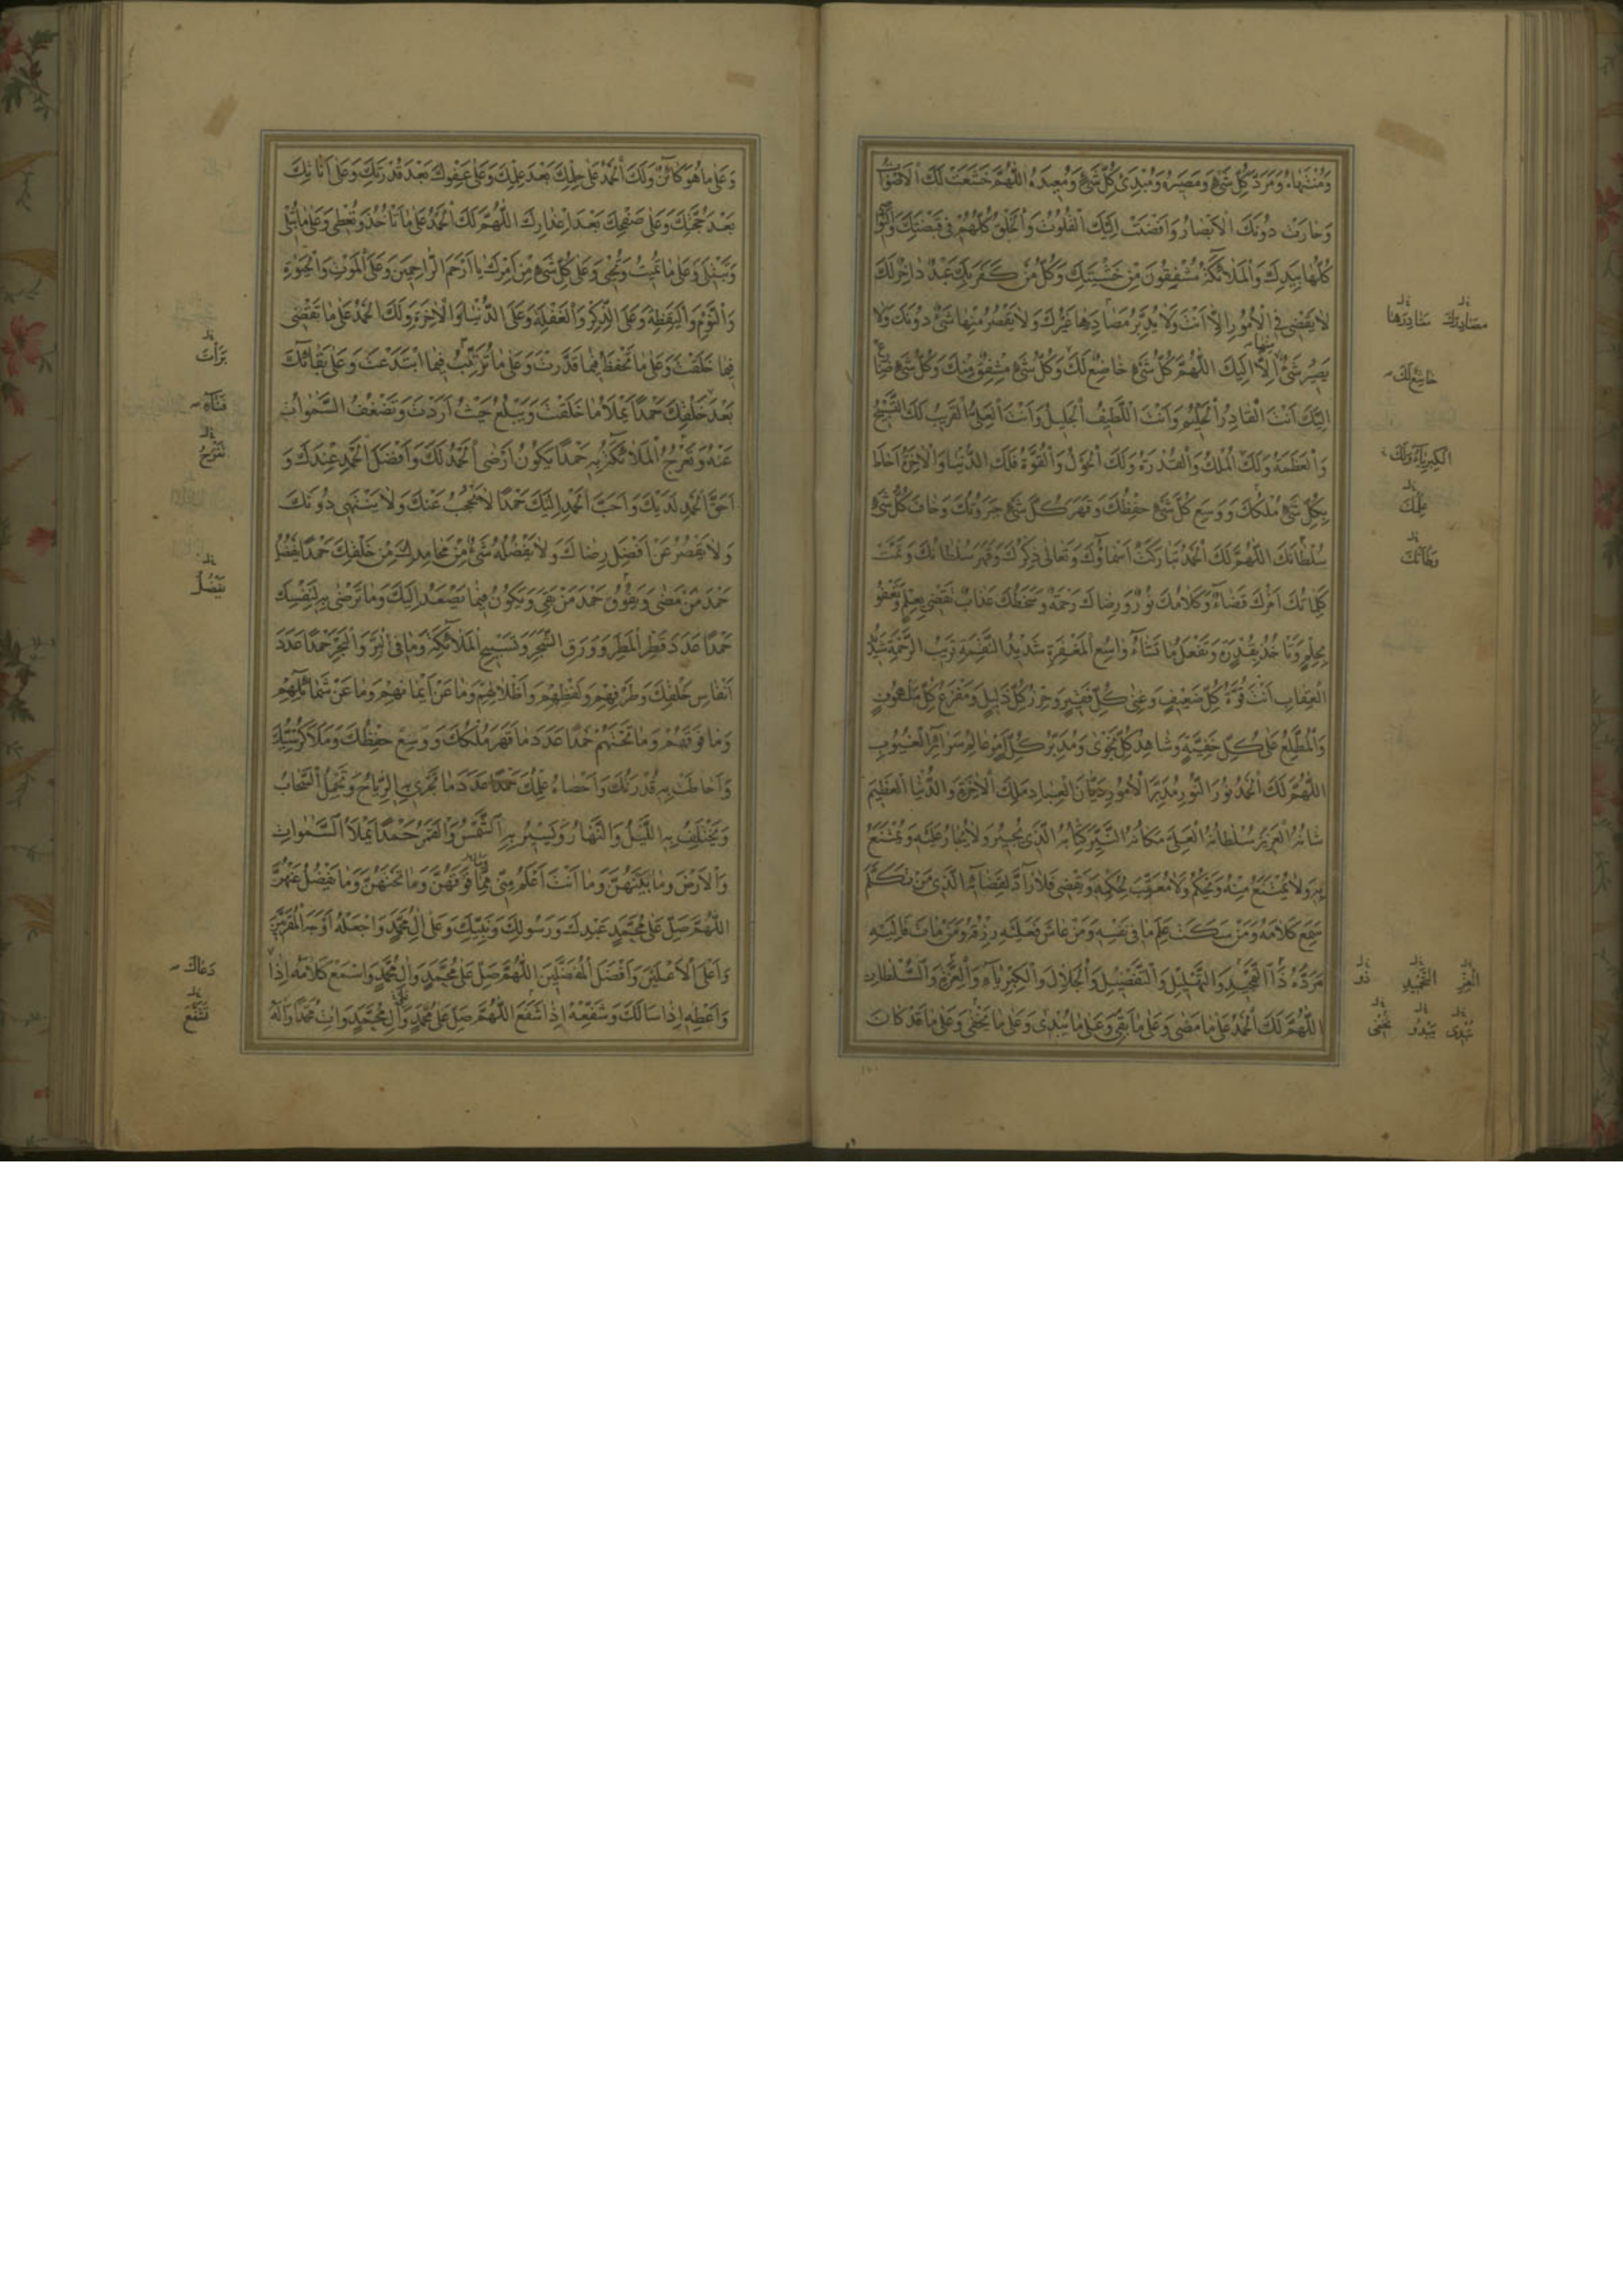 وَمُنْتَهاهُ وَمَرَدَّ كُلِّ شَيْءٍ وَمَصيرَهُ وَمُبْدِئَ كُلِّ شَيْءٍ وَمُعيدَهُ اللّهُمَّ خَشَعَتْ لَكَ الْاَصْواتُ
وَحارَتْ دُونَكَ الْاَبْصارُ وَاَفْضَتْ اِلَيْكَ الْقُلُوبُ وَالْخَلْقُ كُلُّهُمْ في قَبْضَتِكَ وَالنَّواصي
كُلُّها بِيَدِكَ وَالْمَلائِكَةُ مُشْفِقُونَ مِنْ خَشْيَتِكَ وَكُلُّ مَنْ كَفَرَ بِكَ عَبْدٌ داخِرٌ لَكَ
لا يَقْضي فِي الْاُمُورِ اِلّا اَنْتَ وَلا يُدَبِّرُ مَصادِرَها غَيْرُكَ وَلا يَقْصُرُ مِنْها شَيْءٌ دُونَكَ وَلا
يَصيرُ شَيْءٌ مِنْها اِلّا اِلَيْكَ اللّهُمَّ كُلُّ شَيْءٍ خاضِعٌ لَكَ وَكُلُّ شَيْءٍ مُشْفِقٌ مِنْكَ وَكُلُّ شَيْءٍ ضارِعٌ
اِلَيْكَ اَنْتَ الْقادِرُ الْحَكيمُ وَاَنْتَ اللَّطيفُ الْجَليلُ وَاَنْتَ الْعَلِيُّ الْقَريبُ لَكَ التَّسْبيحُ
وَالْعَظَمَةُ وَلَكَ الْمُلْكُ وَالْقُدْرَةُ وَلَكَ الْحَوْلُ وَالْقُوَّةُ فَلَكَ الدُّنْيا وَالْاخِرَةُ اَحاطَ
بِكُلِّ شَيْءٍ مُلْكُكَ وَوَسِعَ كُلَّ شَيْءٍ حِفْظُكَ وَقَهَرَ كُلَّ شَيْءٍ جَبَرُوتُكَ وَخافَ كُلُّ شَيْءٍ
سُلْطانَكَ اللّهُمَّ لَكَ الْحَمْدُ تَبارَكَتْ اَسْماؤُكَ وَتَعالى ذِكْرُكَ وَقَهَرَ سُلْطانُكَ وَتَمَّتْ
كَلِماتُكَ اَمْرُكَ قَضاءٌ وَكَلامُكَ نُورٌ وَرِضاكَ رَحْمَةٌ وَسَخَطُكَ عَذابٌ تَقْضي بِعِلْمٍ وَتَعْفُو
بِحِلْمٍ وَتَاْخُذُ بِقُدْرَةٍ وَتَفْعَلُ ما تَشاءُ واسِعُ الْمَغْفِرَةِ شَديدُ النَّقِمَةِ قَريبُ الرَّحْمَةِ شَديدُ
الْعِقابِ اَنْتَ قُوَّةُ كُلِّ ضَعيفٍ وَغِنى كُلِّ فَقيرٍ وَحِرْزُ كُلِّ ذَليلٍ وَمَفْزَعُ كُلِّ مَلْهُوفٍ
وَالْمُطَّلِعُ عَلى كُلِّ خَفِيَّةٍ وَشاهِدُ كُلِّ نَجْوى وَمُدَبِّرُ كُلِّ اَمْرٍ عالِمُ سَرائِرِ الْغُيُوبِ
اللّهُمَّ لَكَ الْحَمْدُ نُورَ النُّورِ مُدَبِّرَ الْاُمُورِ دَيّانَ الْعِبادِ مَلِكَ الْاخِرَةِ وَالدُّنْيا الْعَظيمَ
شَاْنُهُ الْعَزيزَ سُلْطانُهُ الْعَلِيَّ مَكانُهُ النَّيِّرَ كِتابُهُ الَّذي يُجيرُ وَلا يُجارُ عَلَيْهِ وَيُمْتَنَعُ
بِهِ وَلا يُمْتَنَعُ مِنْهُ وَيَحْكُمُ وَلا مُعَقِّبَ لِحُكْمِهِ وَيَقْضي فَلا رادَّ لِقَضائِهِ الَّذي مَنْ تَكَلَّمَ
سَمِعَ كَلامَهُ وَمَنْ سَكَتَ عَلِمَ ما في نَفْسِهِ وَمَنْ عاشَ فَعَلَيْهِ رِزْقُهُ وَمَنْ ماتَ فَاِلَيْهِ
مَرَدُّهُ ذَا التَّمْجيدِ وَالتَّهْليلِ وَالتَّفْضيلِ وَالْجَلالِ وَالْكِبْرِياءِ وَالْعِزَّةِ وَالسُّلْطانِ
اللّهُمَّ لَكَ الْحَمْدُ عَلى ما مَضى وَعَلى ما بَقِيَ وَعَلى ما تُبْدي وَعَلى ما تُخْفي وَعَلى ما قَدْ كانَ
مَصادِرَكَ مَقادِرَها
خاشِعٌ لَكَ
الْكِبْرِياءُ وَلَكَ
عِلْمُكَ
التَّحْميدِ
تُبْدي
وَعَلى ما هُوَ كائِنٌ وَلَكَ الْحَمْدُ عَلى حِلْمِكَ بَعْدَ عِلْمِكَ وَعَلى عَفْوِكَ بَعْدَ قُدْرَتِكَ وَعَلى اَناتِكَ
بَعْدَ حُجَّتِكَ وَعَلى صَفْحِكَ بَعْدَ اِعْذارِكَ اللّهُمَّ لَكَ الْحَمْدُ عَلى ما تَاْخُذُ وَتُعْطي وَعَلى ما تُبْلي
وَتَبْتَلي وَعَلى ما تُميتُ وَتُحْيي وَعَلى كُلِّ شَيْءٍ مِنْ اَمْرِكَ يا اَرْحَمَ الرّاحِمينَ وَعَلَى الْمَوْتِ وَالْحَيوةِ
وَالنَّوْمِ وَالْيَقْظَةِ وَعَلَى الذِّكْرِ وَالْغَفْلَةِ وَعَلَى الدُّنْيا وَالْاخِرَةِ وَلَكَ الْحَمْدُ عَلى ما تَقْضي
فيما خَلَقْتَ وَعَلى ما تَحْفَظُ فيما قَدَّرْتَ وَعَلى ما تُرَتِّبُ فيما ابْتَدَعْتَ وَعَلى بَقائِكَ
بَعْدَ خَلْقِكَ حَمْدًا يَمْلَأُ ما خَلَقْتَ وَيَبْلُغُ حَيْثُ اَرَدْتَ وَتَضْعُفُ السَّمواتُ
عَنْهُ وَتَعْرُجُ الْمَلائِكَةُ بِهِ حَمْدًا يَكُونُ اَرْضَى الْحَمْدِ لَكَ وَاَفْضَلَ الْحَمْدِ عِنْدَكَ وَ
اَحَقَّ الْحَمْدِ لَدَيْكَ وَاَحَبَّ الْحَمْدِ اِلَيْكَ حَمْدًا لا يُحْجَبُ عَنْكَ وَلا يَنْتَهي دُونَكَ
وَلا يَقْصُرُ عَنْ اَفْضَلِ رِضاكَ وَلا يَفْضُلُهُ شَيْءٌ مِنْ مَحامِدِكَ مِنْ خَلْقِكَ حَمْدًا يَفْضُلُ
حَمْدَ مَنْ مَضى وَيَفُوقُ حَمْدَ مَنْ بَقِيَ وَيَكُونُ فيما يَصْعَدُ اِلَيْكَ وَما تَرْضى بِهِ لِنَفْسِكَ
حَمْدًا عَدَدَ قَطْرِ الْمَطَرِ وَوَرَقِ الشَّجَرِ وَتَسْبيحِ الْمَلائِكَةِ وَما فِي الْبَرِّ وَالْبَحْرِ حَمْدًا عَدَدَ
اَنْفاسِ خَلْقِكَ وَطَرْفِهِمْ وَلَفْظِهِمْ وَاَظْلالِهِمْ وَما عَنْ اَيْمانِهِمْ وَما عَنْ شَمائِلِهِمْ
وَما فَوْقَهُمْ وَما تَحْتَهُمْ حَمْدًا عَدَدَ ما قَهَرَ مُلْكُكَ وَوَسِعَ حِفْظُكَ وَمَلَأَ كُرْسِيُّكَ
وَاَحاطَتْ بِهِ قُدْرَتُكَ وَاَحْصاهُ عِلْمُكَ حَمْدًا عَدَدَ ما تَجْري بِهِ الرِّياحُ وَتَحْمِلُ السَّحابُ
وَيَخْتَلِفُ بِهِ اللَّيْلُ وَالنَّهارُ وَتَسيرُ بِهِ الشَّمْسُ وَالْقَمَرُ حَمْدًا يَمْلَأُ السَّمواتِ
وَالْاَرْضَ وَما بَيْنَهُنَّ وَما اَنْتَ اَعْلَمُ بِهِ مِنّي مِمّا فَوْقَهُنَّ وَما تَحْتَهُنَّ وَما يَفْضُلُ عَنْهُنَّ
اللّهُمَّ صَلِّ عَلى مُحَمَّدٍ عَبْدِكَ وَرَسُولِكَ وَنَبِيِّكَ وَعَلى الِ مُحَمَّدٍ وَاجْعَلْهُ اَوْجَهَ الْمُقَرَّبينَ
وَاَعْلَى الْاَعْلَيْنَ وَاَفْضَلَ الْمُفَضَّلينَ اللّهُمَّ صَلِّ عَلى مُحَمَّدٍ وَالِ مُحَمَّدٍ وَاسْمَعْ كَلامَهُ اِذا
وَاَعْطِهِ اِذا سَاَلَكَ وَشَفِّعْهُ اِذا شَفَعَ اللّهُمَّ صَلِّ عَلى مُحَمَّدٍ وَعَلى الِ مُحَمَّدٍ وَاتِ مُحَمَّدًا وَالَهُ
بَرَاْتَ
يَفْضُلُ
دَعاكَ